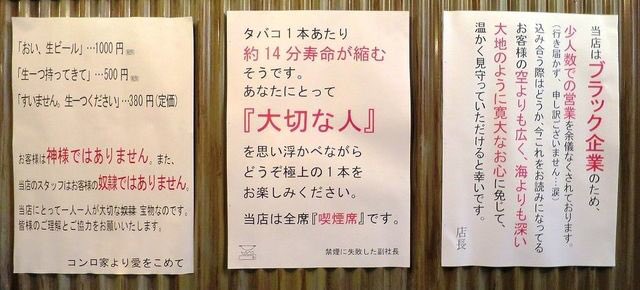 「おい、生ビール」…1000円
「生一つ持ってきて」…500円
「すいません。生一つください」…380円(定価)
お客様は神様ではありません。また、
当店のスタッフはお客様の奴隷ではありません。
当店にとって一人一人が大切な奴隷 宝物なのです。
皆様のご理解とご協力をお願いいたします。
コンロ家より愛をこめて
タバコ1本あたり
約14分寿命が縮む
そうです。
あなたにとって
『大切な人』
を思い浮かべながら
どうぞ極上の1本を
お楽しみください。
当店は全席『喫煙席』です。
禁煙に失敗した副社長
当店はブラック企業のため、
少人数での営業を余儀なくされております。
(行き届かず、申し訳ございません…涙)
込み合う際はどうか、今これをお読みになってる
お客様の空よりも広く、海よりも深い
大地のように寛大なお心に免じて、
温かく見守っていただけると幸いです。
店長